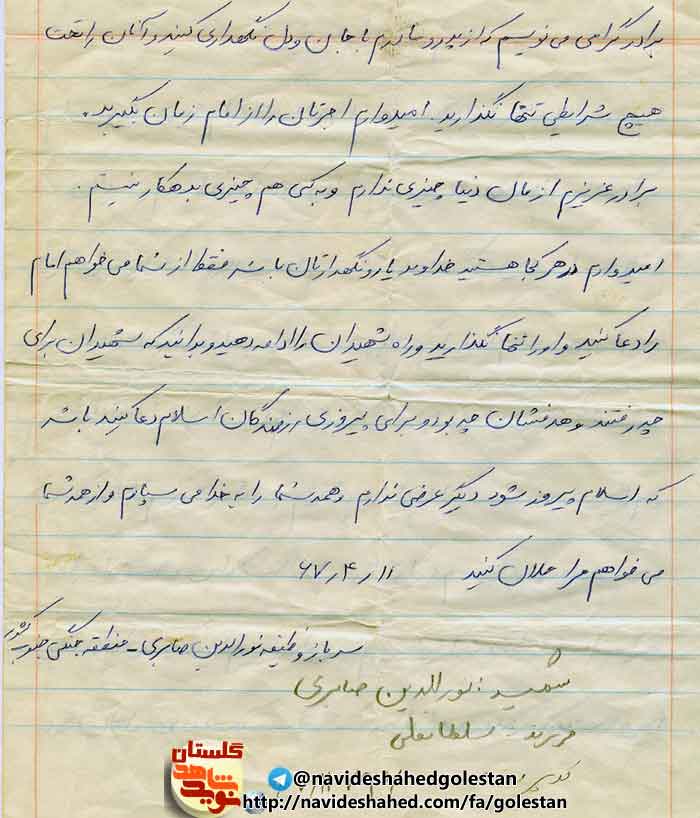 برادر گرامی می نویسم که از پدر و مادرم با جان و دل نگهداری کنید و آنان را تحت
هیچ شرایطی تنها نگذارید. امیدوارم اجرتان را از امام زمان بگیرید.
برادر عزیزم از مال دنیا چیزی ندارم و به کسی هم چیزی بدهکار نیستم.
امیدوارم در هر کجا هستید خداوند یار و نگهدارتان باشد فقط از شما می خواهم امام
را دعا کنید و او را تنها نگذارید و راه شهیدان را ادامه دهید و بدانید که شهیدان برای
چه رفتند و هدفشان چه بود و برای پیروزی رزمندگان اسلام دعا کنید باشد
که اسلام پیروز شود دیگر عرضی ندارم و همه شما را به خدا می سپارم و از همه شما
می خواهم مرا حلال کنید ۶۷٫۴٫۱۱
سرباز وظیفه نورالدین صابری - منطقه جنگی جنوب کشور
شهید: نورالدین صابری
فرزند: سلطانعلی
گلستان
نوید شاهد
@navideshahedgolestan
http://navideshahed.com/fa/golestan